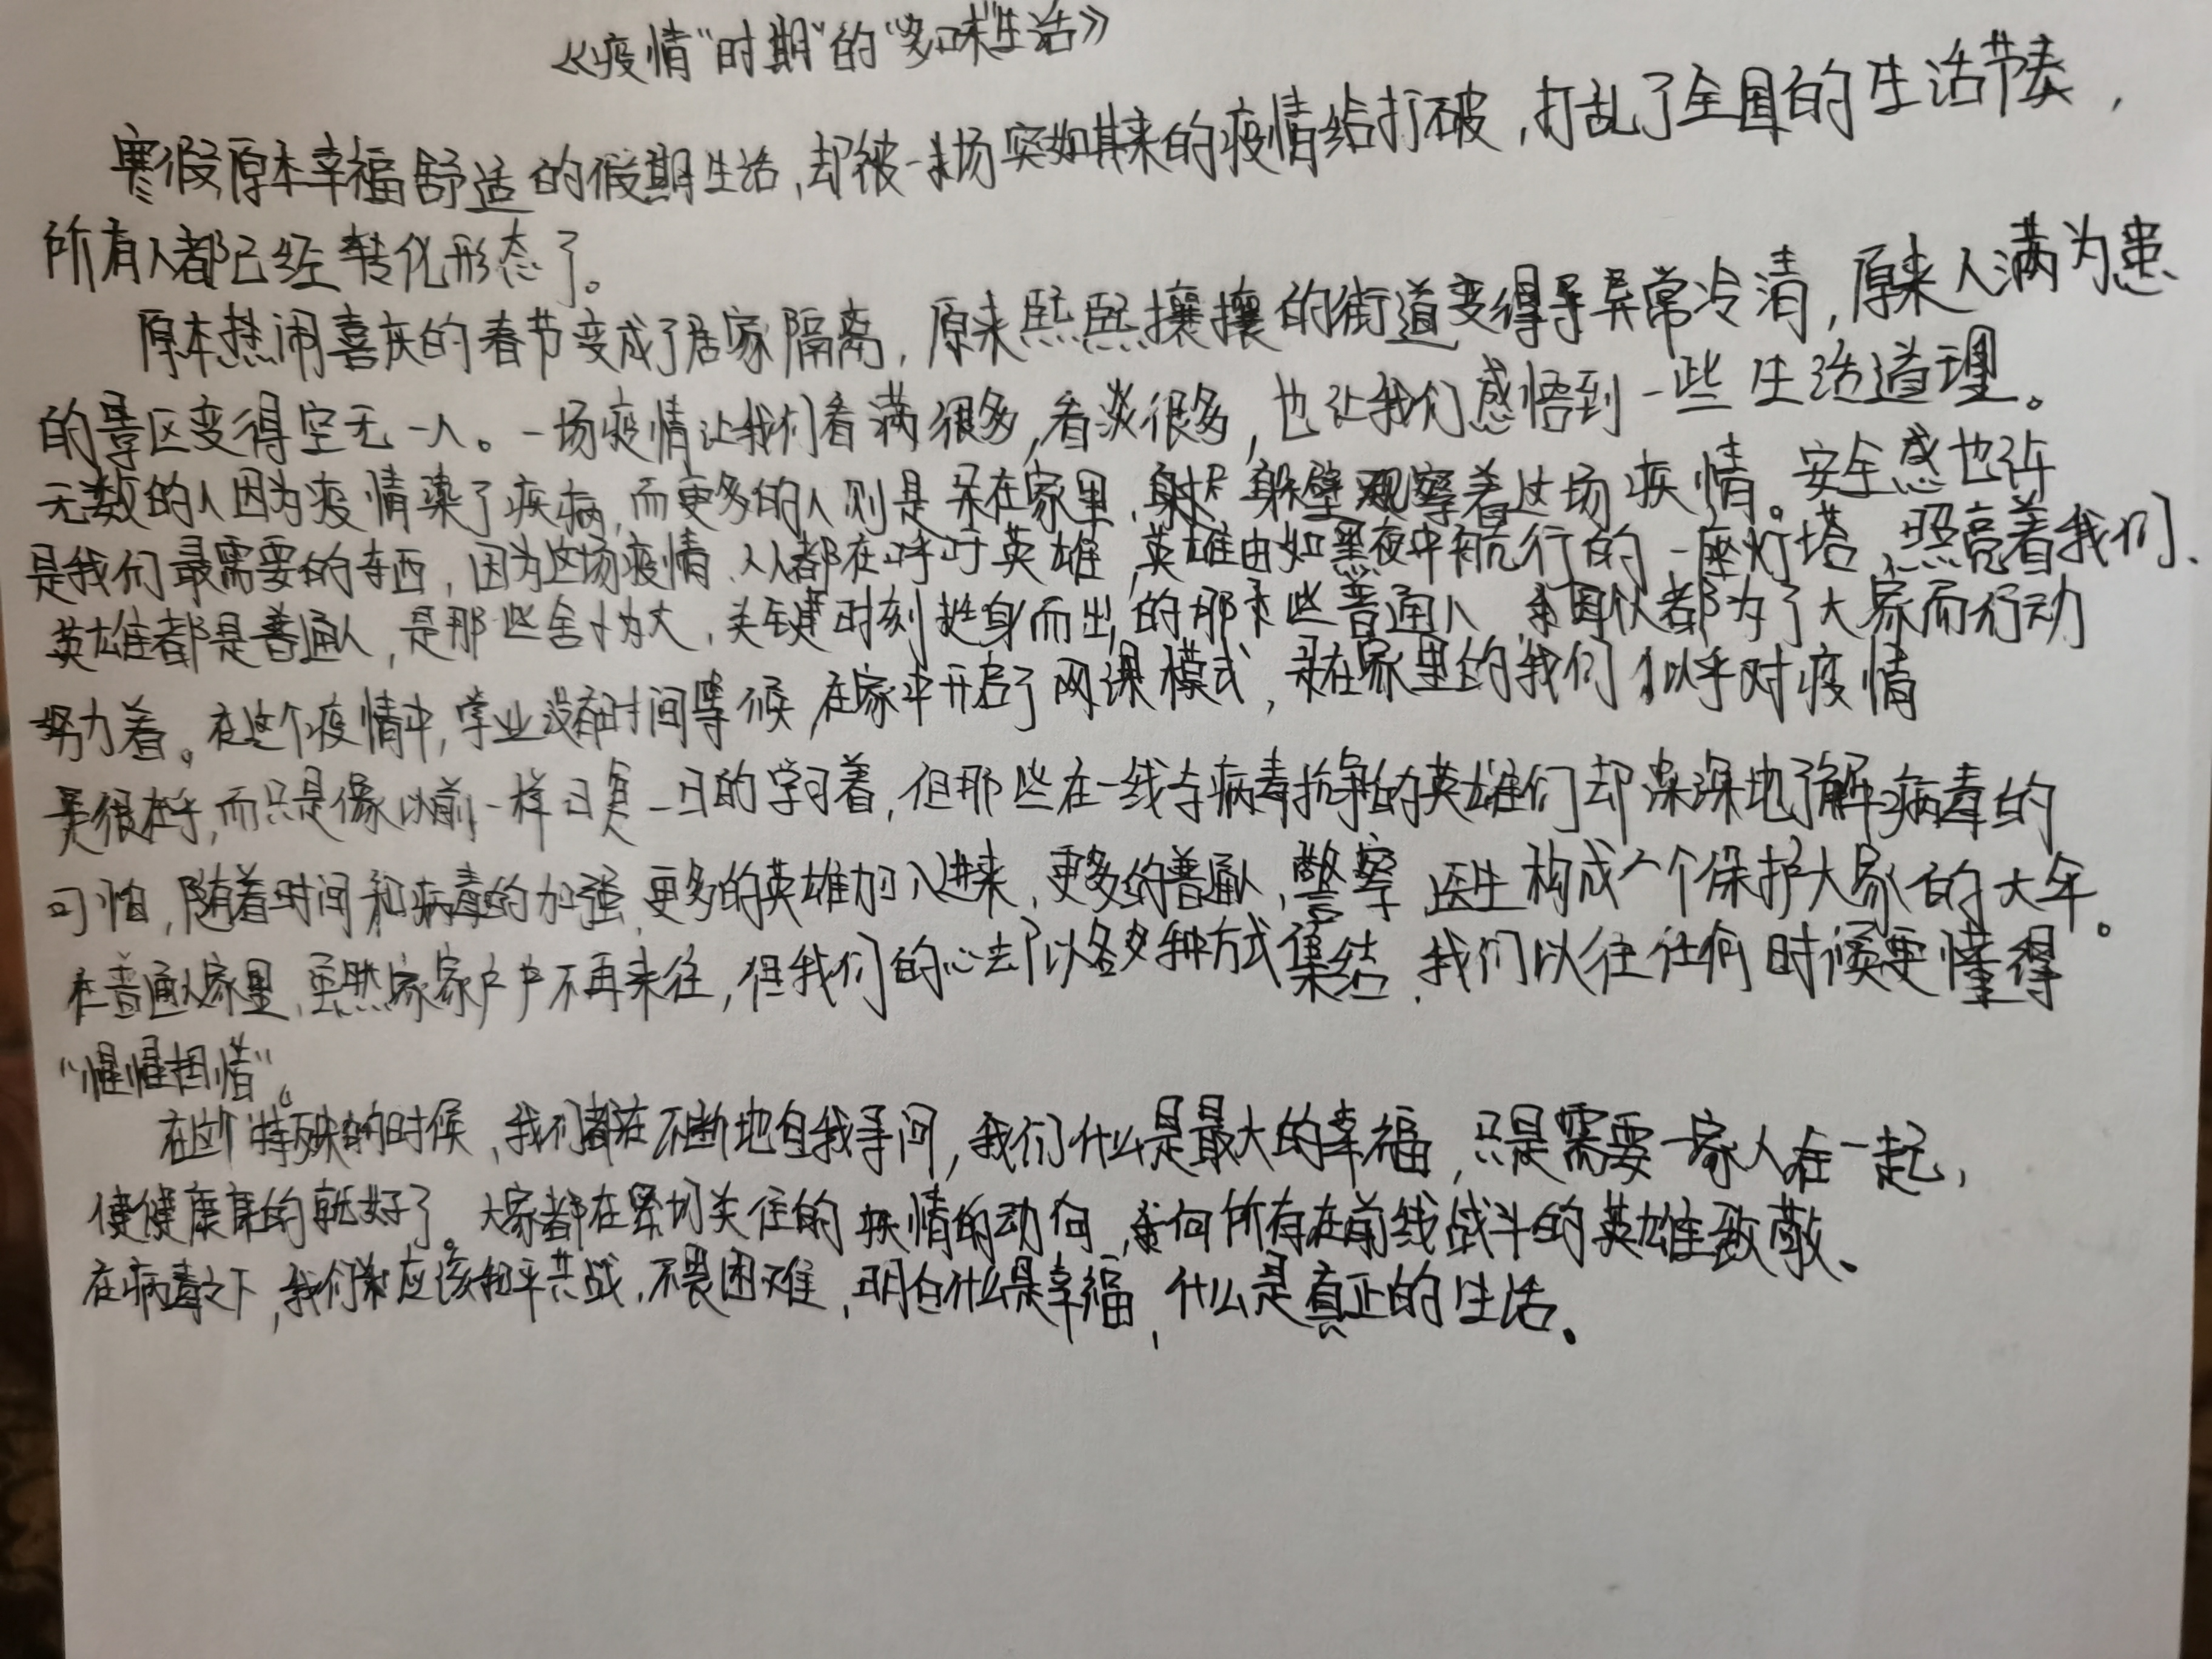 《疫情"时期"的"多味"生活》
寒假原本幸福舒适的假期生活,却被一场突如其来的疫情给打破,打乱了全国的生活节奏,
所有人都已经转化形态了。
原本热闹喜庆的春节变成了居家隔离,原来熙熙攘攘的街道变得异常冷清,原来人满为患
的景区变得空无一人。一场疫情让我们看满很多,看淡很多,也让我们感悟到一些生活道理。
无数的人因为疫情染了疾病,而更多的人则是呆在家里,观察着这场疾情。安全感也许
是我们最需要的东西,因为这场疫情、人人都在呼吁英雄,英雄由如黑夜中航行的一座灯塔,照亮着我们、
英雄都是普通人,是那些舍小为大、关键时刻挺身而出的那些普通人 全国人都为了大家而行动
努力着。在这个疫情中,学业没有时间等候,在家中开启了网课模式,呆在家里的我们似乎对疫情
很在乎,而只是像以前一样日复一日的学习着,但那些在一线与病毒抗争的英雄们却深深地了解病毒的
可怕,随着时间和病毒的加强,更多的英雄加入进来,更多的普通人,警察,医生构成一个保护大家的大伞。
在普通人家里,虽然家家户户不再来往,但我们的心却以各种方式集结,我们以往任何时候更懂得
"惺惺相惜"。
在这个特殊的时候,我们都在不断地自我寻问,我们什么是最大的幸福,只是需要一家人在一起,
健健康康的就好了。大家都在密切关注的疾情的动向,向所有在前线战斗的英雄致敬、
在病毒之下,我们应该和平共战,不畏困难,明白什么是幸福,什么是真正的生活。